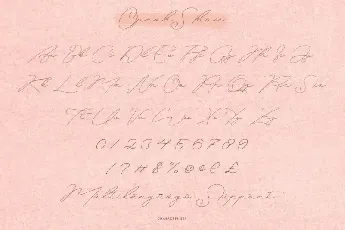 Aa Bb Cc Dd Ee Ff Gg Hh Ii Jj
Kk Ll Mm Nn Oo Pp Qq Rr Ss
Tt Uu Vv Ww Xx Yy Zz
0123456789
!?#&%@¢€£
Multilanguage Support